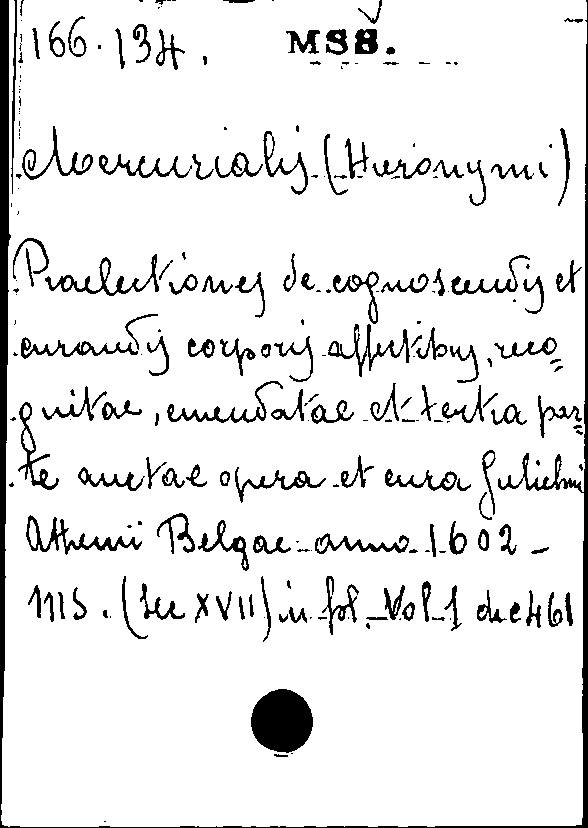 166.134. MSS.
Mercurialis (Hieronymi)
Praelectiones de cognoscendis et
curandis corporis affectibus, reco=
gnitae, emendatae et tertia par=
te auctae opera et cura Gulielmi
Athenii Belgae anno 1602 -
ms. (Sec XVII) in fol. Vol 1 de c 461